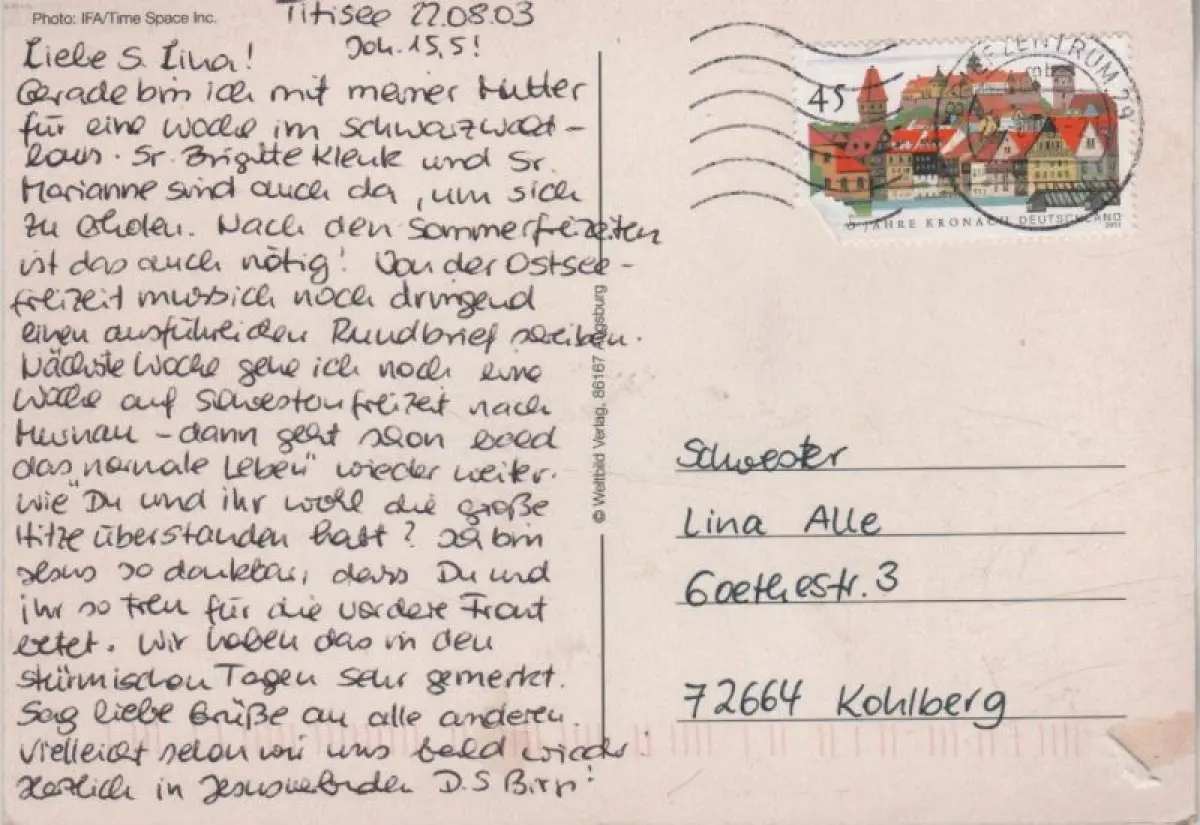 Photo: IFA/Time Space Inc.
Titisee 22.08.03
Joh. 15,5!
Liebe S. Lina!
Gerade bin ich mit meiner Mutter
für eine Woche im Schwarzwald-
haus. Sr. Brigitte Klenk und Sr.
Marianne sind auch da, um sich
zu erholen. Nach den Sommerfreizeiten
ist das auch nötig! Von der Ostsee-
freizeit muss ich noch dringend
einen ausführlichen Rundbrief schreiben.
Nächste Woche gehe ich noch eine
Woche auf Schwesternfreizeit nach
- dann geht schon bald
das "normale Leben" wieder weiter.
Wie Du und ihr wohl die große
Hitze überstanden habt? Ich bin
Jesus so dankbar, dass Du und
ihr so treu für die vordere Front
betet. Wir haben das in den
stürmischen Tagen sehr gemerkt.
Sag liebe Grüße an alle anderen.
Vielleicht sehen wir uns bald wieder!
Herzlich in Jesus verbunden D. S
© Weltbild Verlag, 86167 Augsburg
45
JAHRE KRONACH DEUTSCHLAND
BRIEFZENTRUM 79
Schwester
Lina Alle
Goethestr. 3
72664 Kohlberg